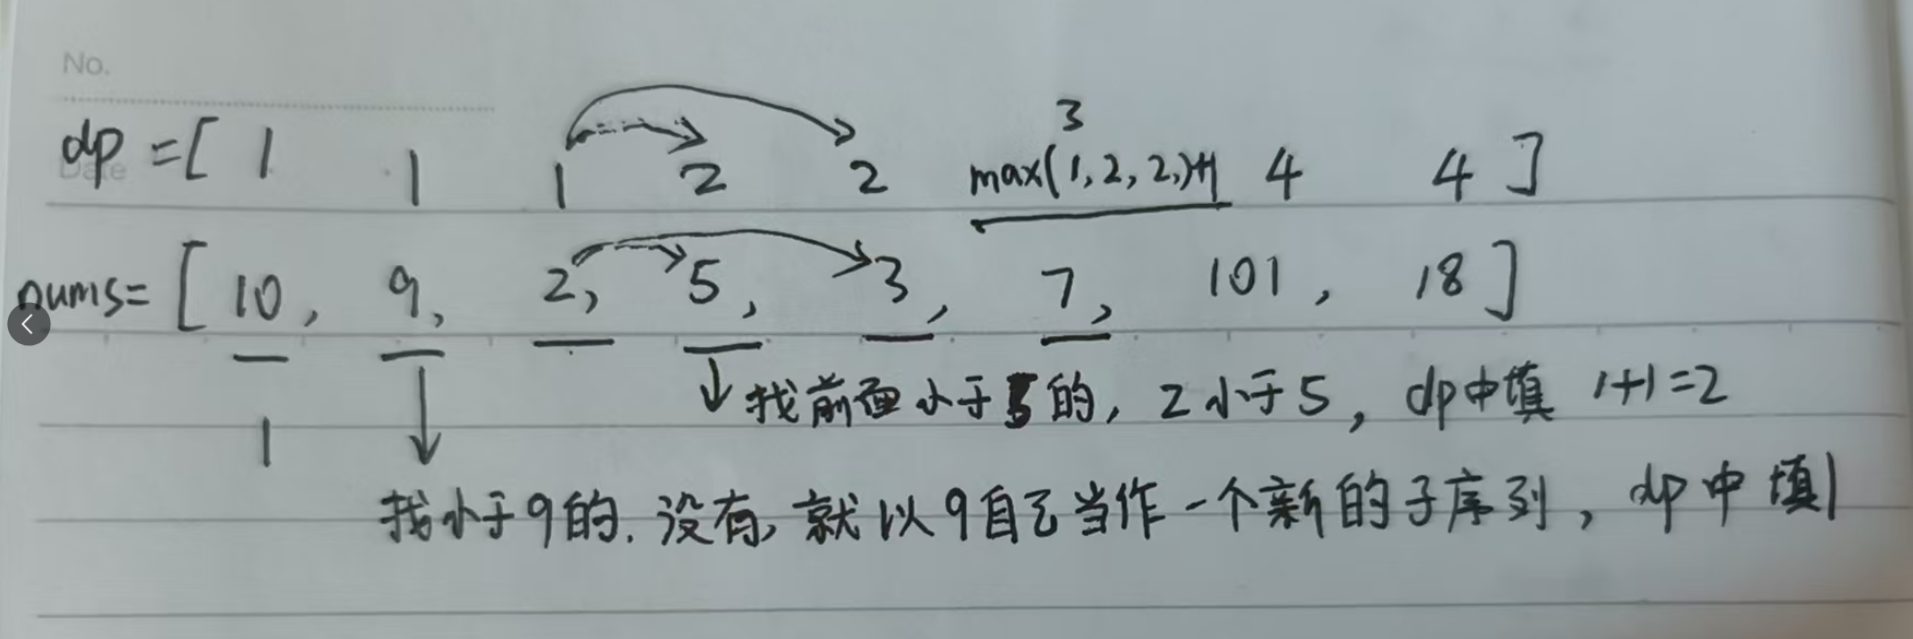 No.
Date
3
dp = [ 1 1 1 2 2 max(1,2,2,)+1 4 4 ]
nums = [ 10, 9, 2, 5, 3, 7, 101, 18 ]
↓ 找前面小于5的, 2小于5, dp中填 1+1=2
1
找小于9的. 没有, 就以9自己当作一个新的子序列, dp中填1